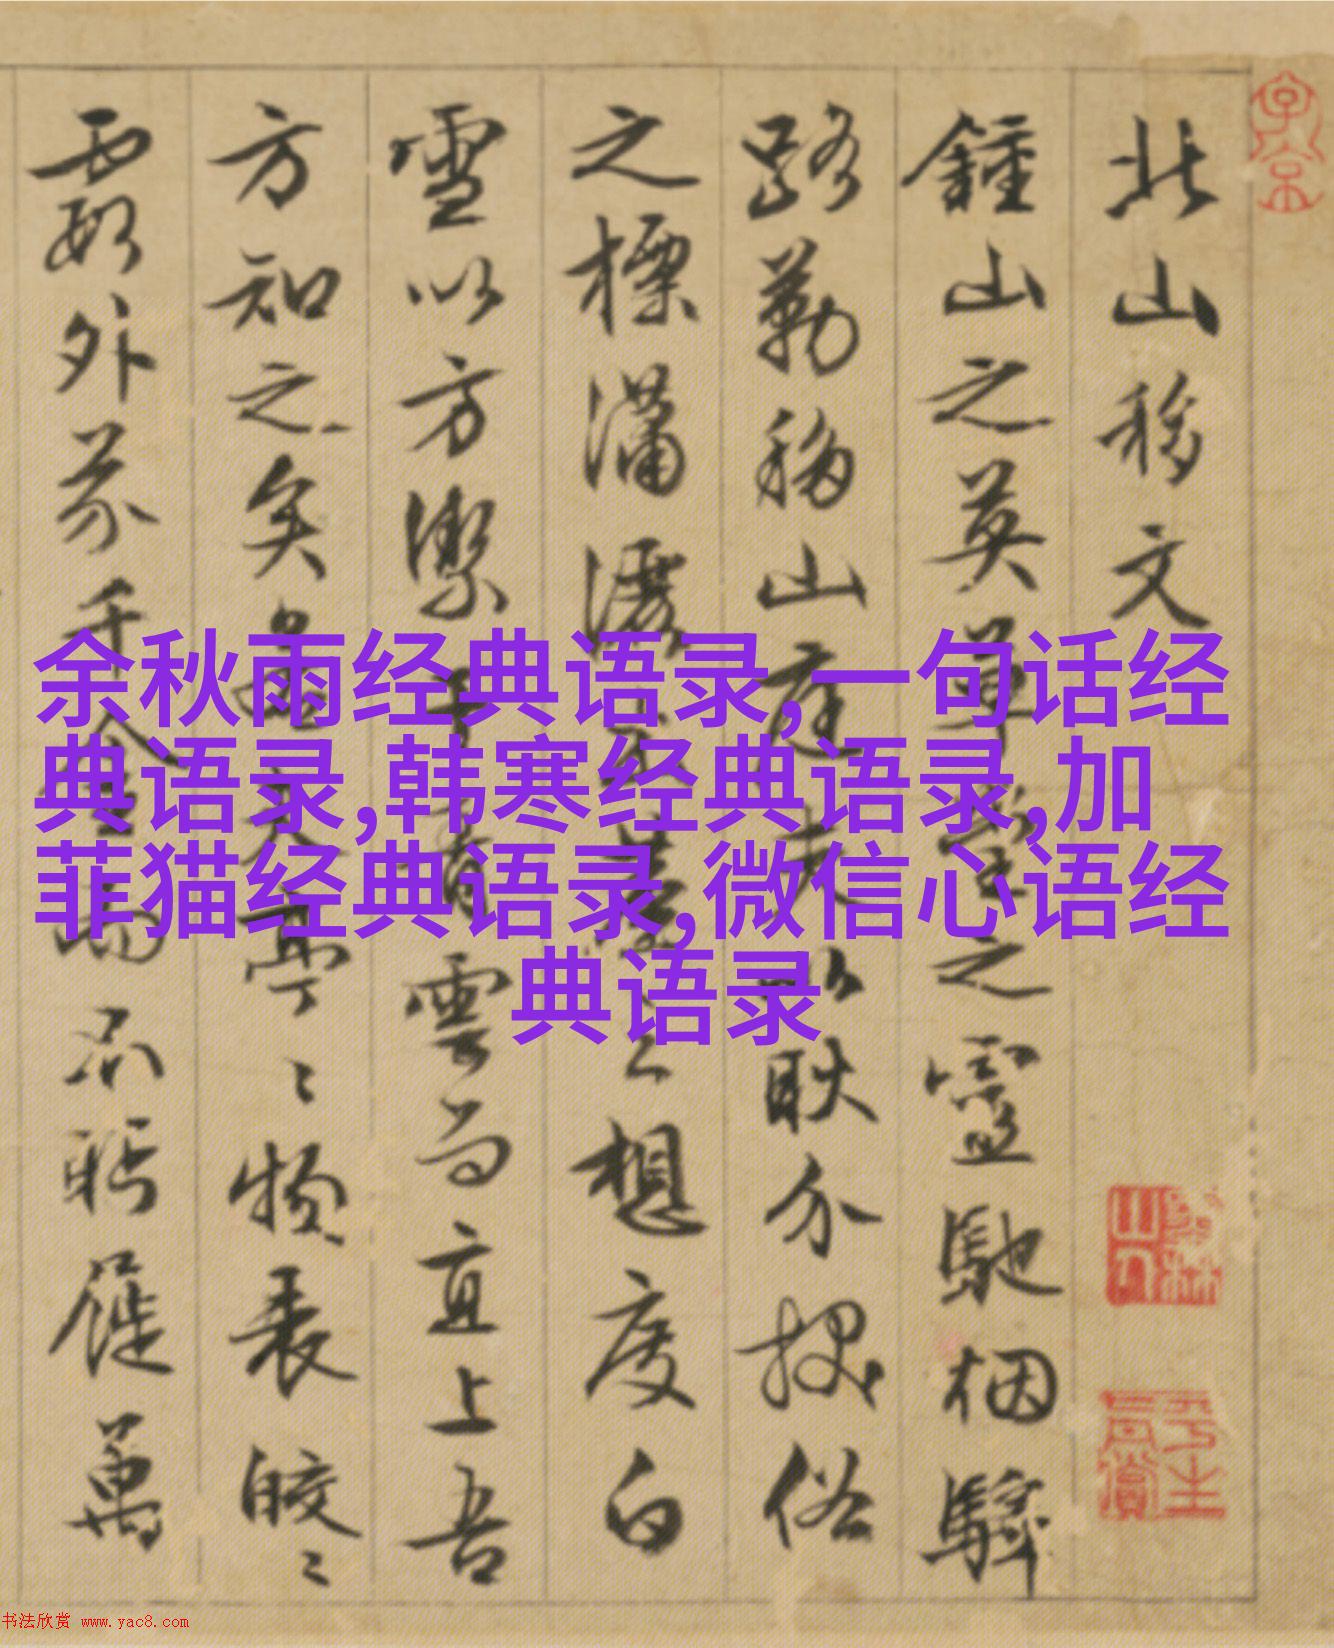 子京
北山移文
墨林山人
平生真賞
鍾山之英草堂之靈馳烟驛
路勒移山庭夫以耿介拔俗
之標瀟灑出塵之想度白
雪以方潔干青雲而直上吾
方知之矣若其亭〻物表皎〻
霞外芥千金而不眄屣萬
余秋雨经典语录,一句话经
典语录,韩寒经典语录,加
菲猫经典语录,微信心语经
典语录
书法欣赏 www.yac8.com